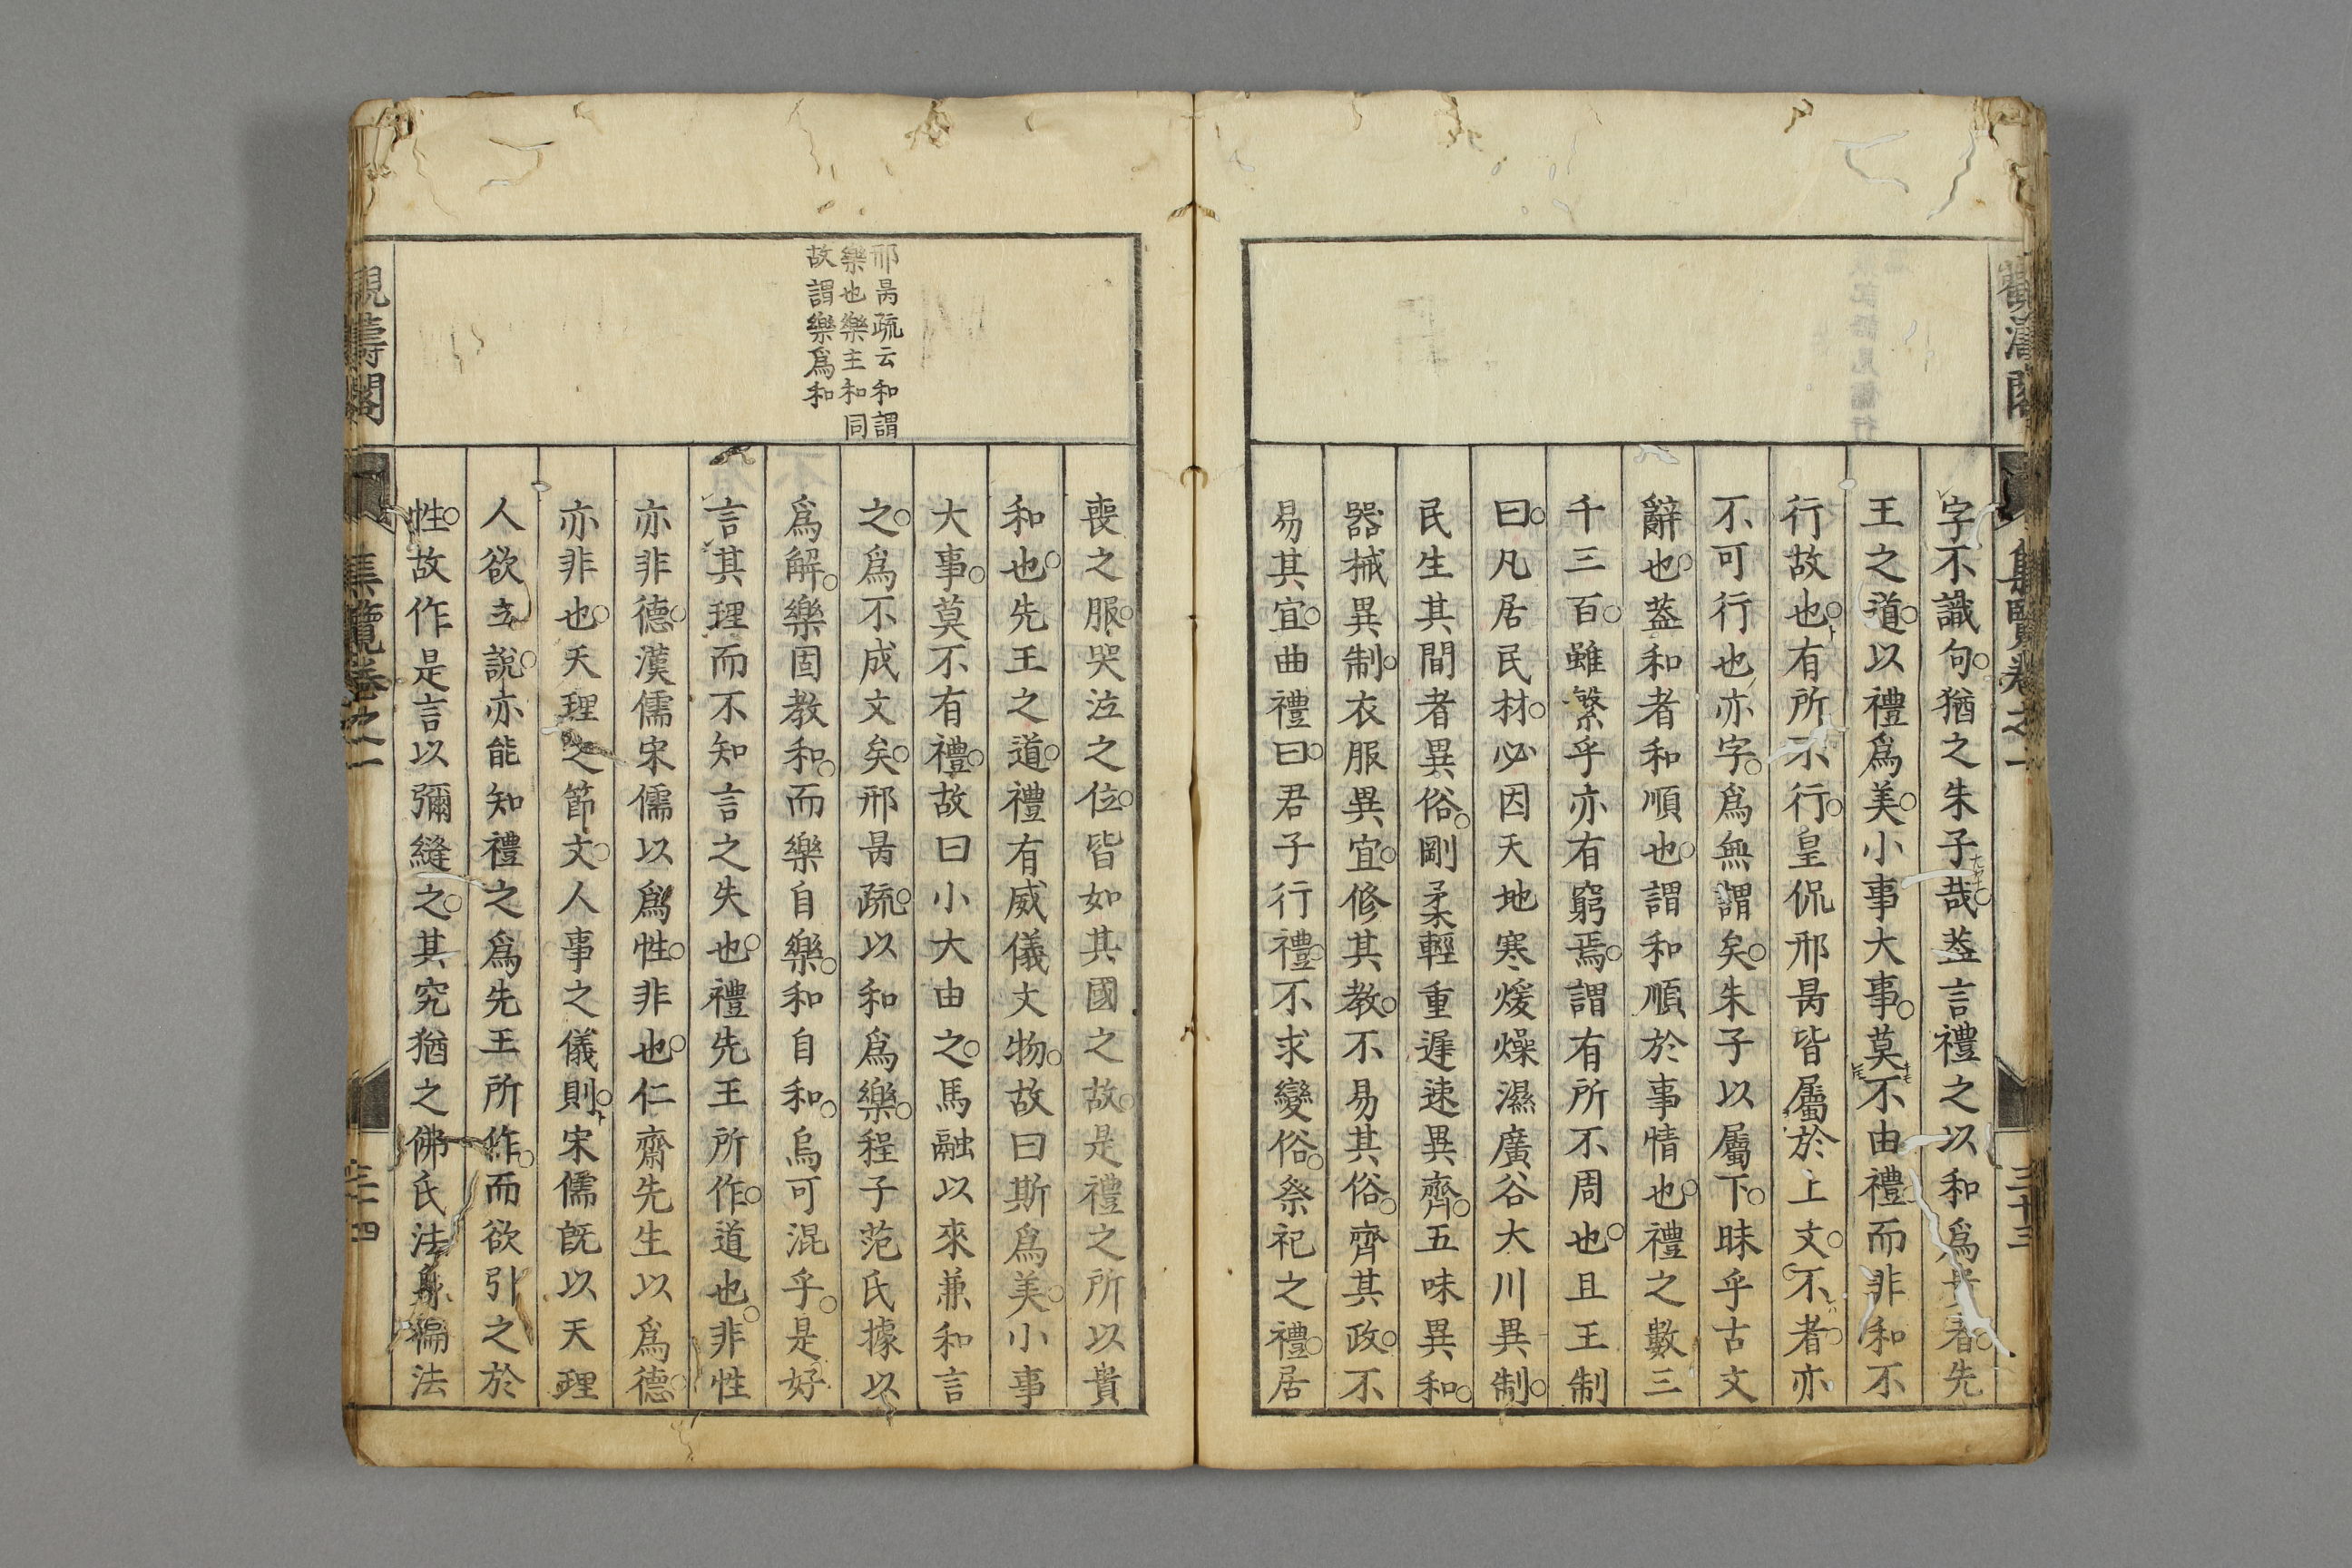 字不識句猶之朱子哉蓋言禮之以和爲貴者先
王之道以禮爲美小事大事莫不由禮而非和不
行故也有所不行皇侃邢昺皆屬於上文不者亦
不可行也亦字爲無謂矣朱子以屬下昧乎古文
辭也蓋和者和順也謂和順於事情也禮之數三
千三百雖繁乎亦有窮焉謂有所不周也且王制
曰凡居民材必因天地寒煖燥濕廣谷大川異制
民生其間者異俗剛柔輕重遲速異齊五味異和
器械異制衣服異宜修其教不易其俗齊其政不
易其宜曲禮曰君子行禮不求變俗祭祀之禮居
喪之服哭泣之位皆如其國之故是禮之所以貴
和也先王之道禮有威儀文物故曰斯爲美小事
大事莫不有禮故曰小大由之馬融以來兼和言
之爲不成文矣邢昺疏以和爲樂程子范氏據以
爲解樂固教和而樂自樂和自和烏可混乎是好
言其理而不知言之失也禮先王所作道也非性
亦非德漢儒宋儒以爲性非也仁齋先生以爲德
亦非也天理之節文人事之儀則宋儒既以天理
人欲立說亦能知禮之爲先王所作而欲引之於
性故作是言以彌縫之其究猶之佛氏法身徧法
邢昺疏云和謂
樂也樂主和同
故謂樂爲和
集覽卷之一
三十三
集覽卷之二